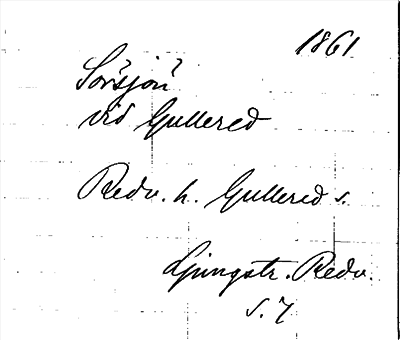 1861
Sorsjön
vid Gullered
Redv. h. Gullered s.
Ljungstr. Redv.
s. 7